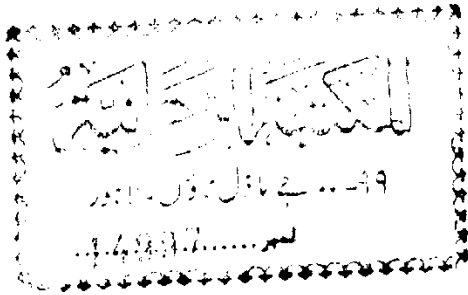 المكتبة الرحمانية
۹۹... جے ماڈل ٹاؤن۔ لاہور
نمبر......